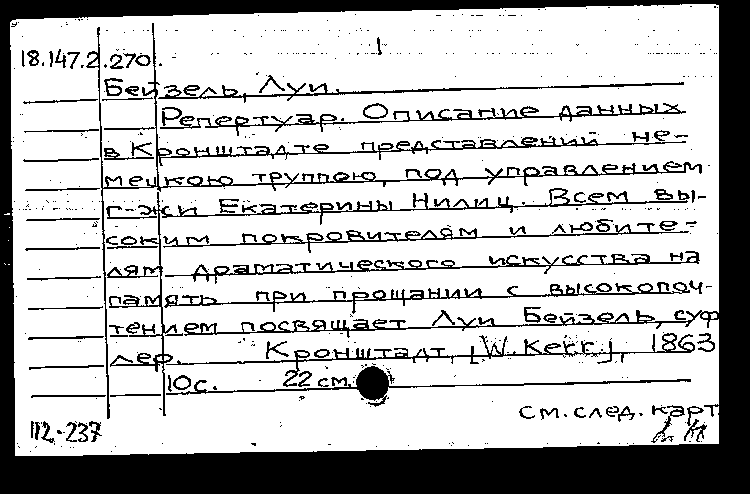 1
18.147.2.270.
Бейзель, Луи.
Репертуар. Описание данных
в Кронштадте представлений не-
мецкою труппою, под управлением
г-жи Екатерины Нилиц. Всем вы-
соким покровителям и любите-
лям драматического искусства на
память при прощании с высокопоч-
тением посвящает Луи Бейзель, суф
лер. Кронштадт, [W. Kerr.], 1863
10с. 22 см.
см. след. карт.
112-237